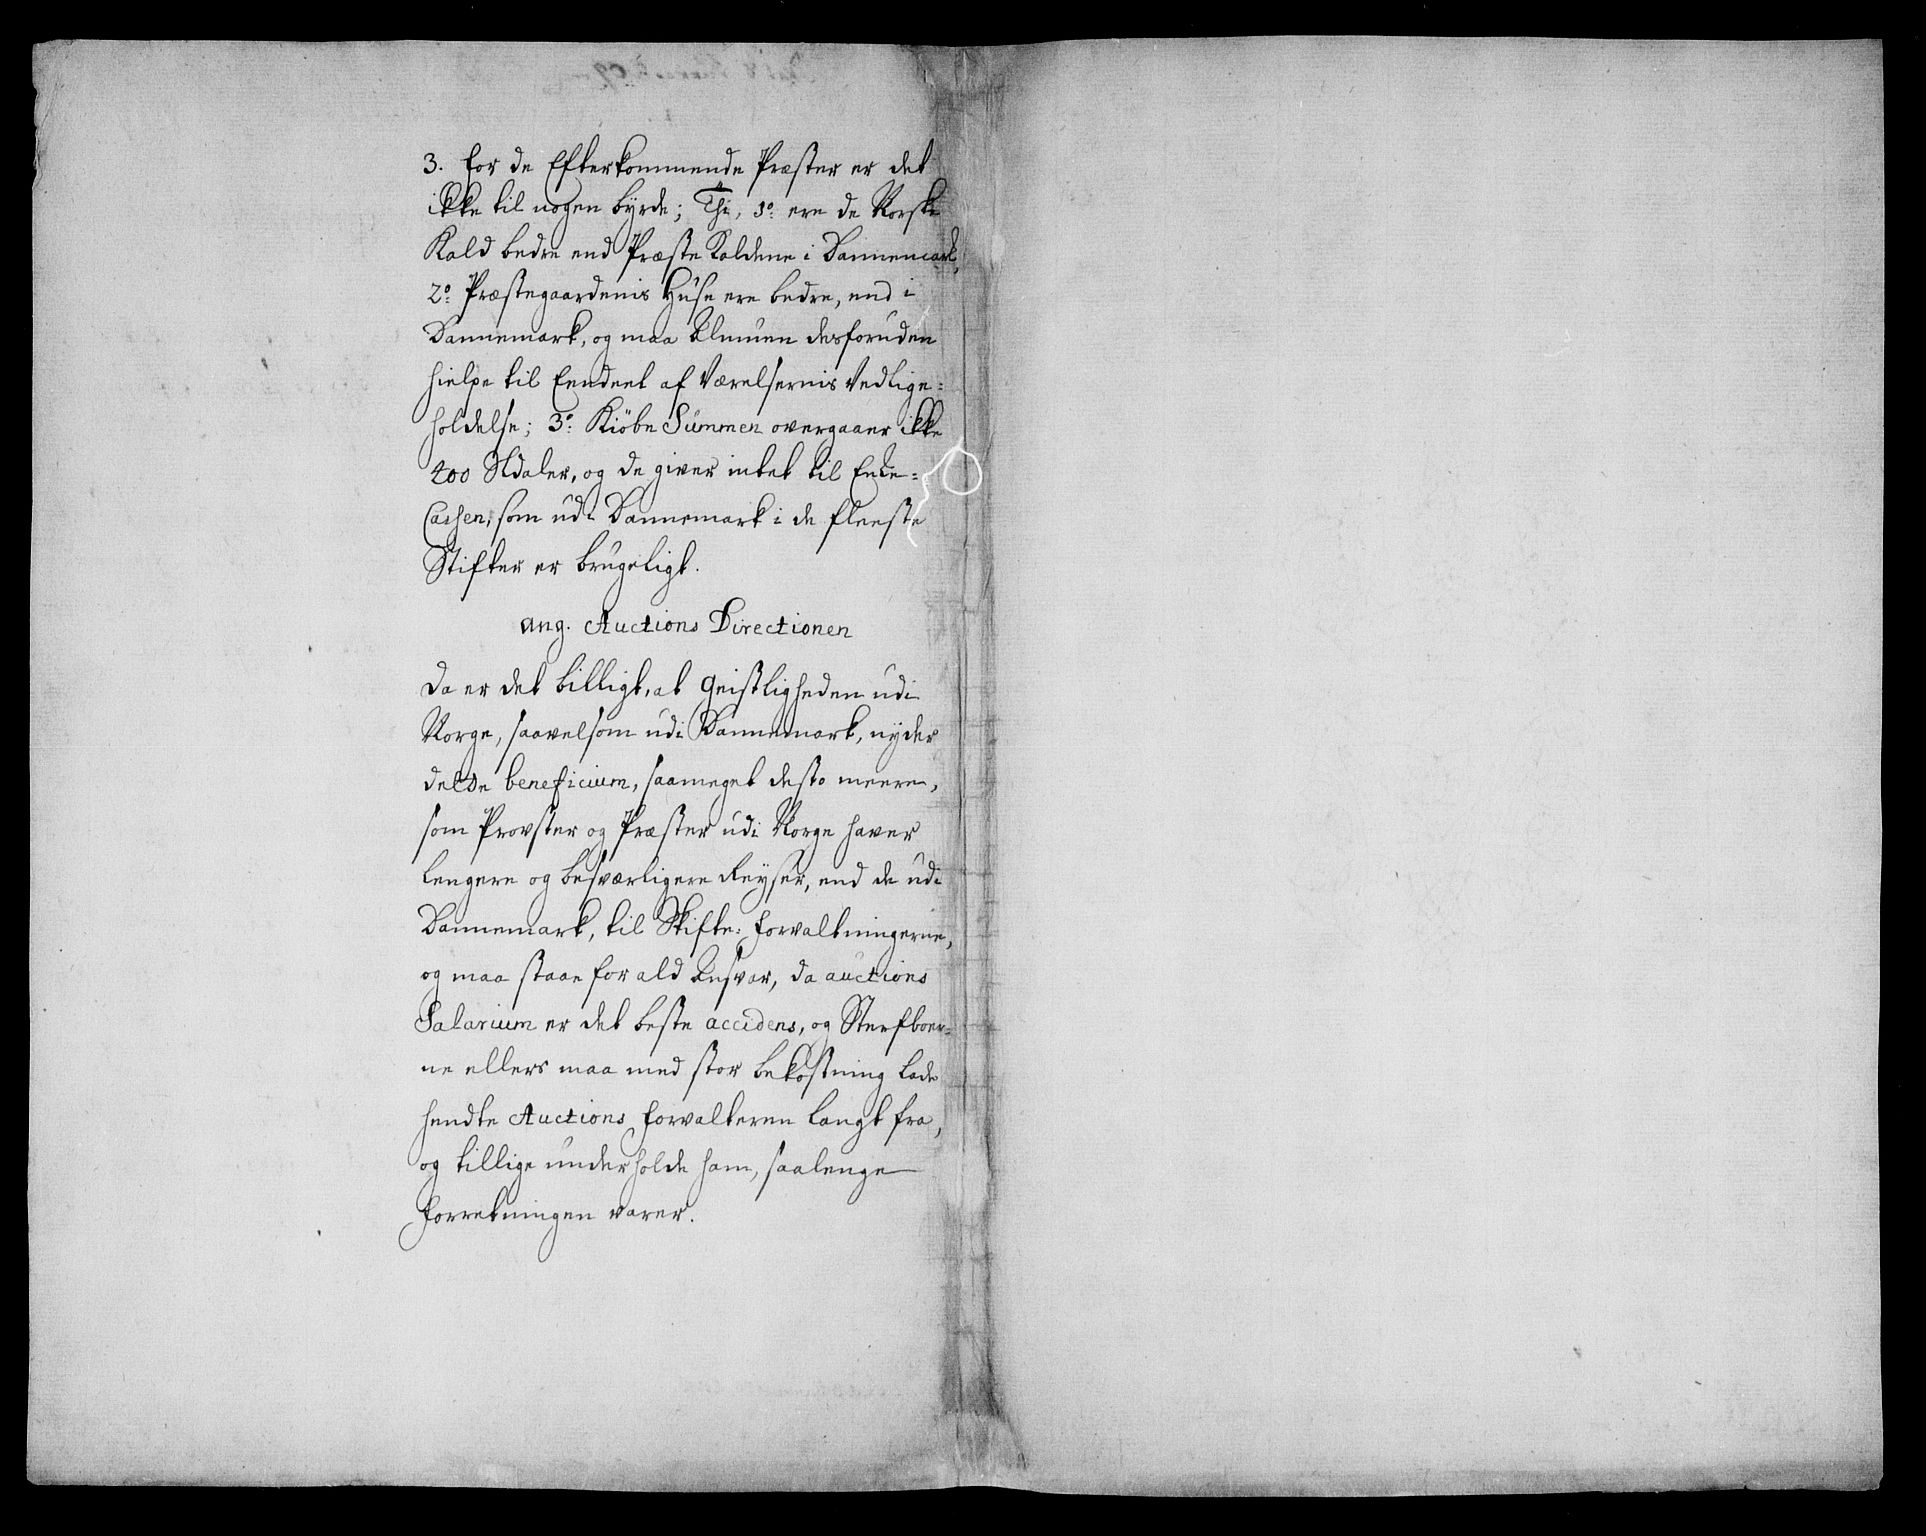 3. For de Efterkommende Præster er det
ikke til nogen byrde; Thi, 1o: ere de Norske
Kald bedre end Præste Kaldene i Dannemark,
2o: Præstegaardenis Huse ere bedre, end i
Dannemark, og maa Almuen desforuden
hielpe til Eendeel af Værelsernis Vedlige=
holdelse; 3o: Kiöbe Summen overgaaer ikke
200 Rdaler, og de giver intet til Enke=
Cassen, som udi Dannemark i de fleeste
Stifter er brugeligt.
ang. Auctions Directionen
Da er det billigt, at Geistligheden udi
Norge, saavelsom udi Dannemark, nyder
dette beneficium, saameget desto meere,
som Provster og Præster udi Norge haver
lengere og besværligere Reyser, end de udi
Dannemark, til Skifte: Forvaltningerne,
og maa staae for ald Ansvar, da auctions
Salarium er det beste accidens, og Sterfboer=
ne ellers maa med stor bekostning lade
hendte Auctions Forvalteren langt fra,
og tillige underholde ham, saalenge
Forretningen varer.